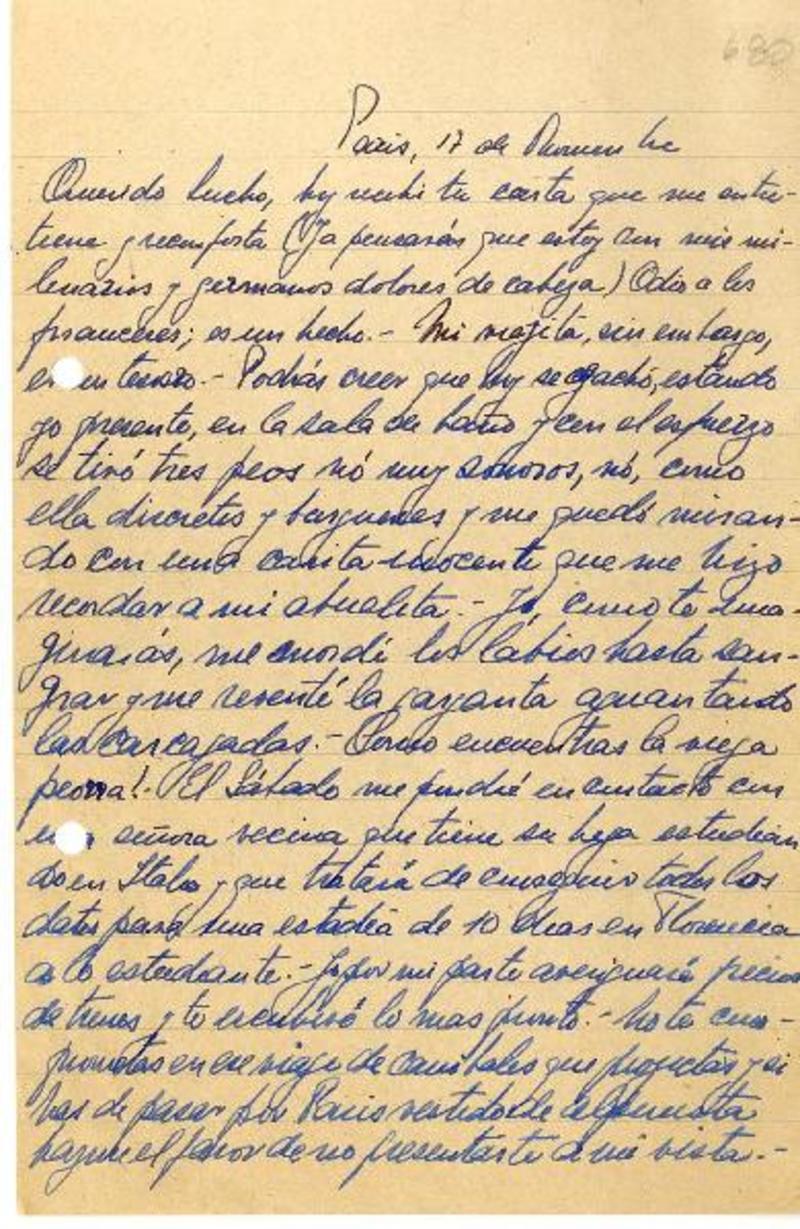 680
Paris, 17 de Noviembre
Querido Lucho, hoy recibí tu carta que me entre-
tiene y reconforta (Ya pensarás que estoy con mis mi-
lenarios y germanos dolores de cabeza) Odio a los
franceses; es un hecho.- Mi viejita, sin embargo,
es un tesoro.- Podrás creer que hoy se agachó, estando
yo presente, en la sala de baño y con el esfuerzo
se tiró tres peos nó muy sonoros, nó, como
ella discretos y burgueses y me quedó miran-
do con una carita inocente que me hizo
recordar a mi abuelita.- Yo, como te ima-
ginarás, me mordí los lábios hasta san-
grar y me reventé la garganta aguantando
las carcajadas.- Como encuentras la vieja
peorra!.- El Sábado me pondré en contacto con
una señora vecina que tiene su hija estudian
do en Italia y que tratará de conseguirme todos los
datos para una estadía de 10 dias en Florencia
a lo estudiante.- Yo por mi parte averiguaré precios
de trenes y te escribiré lo mas pronto.- No te com-
prometas en ese viaje de canibales que proyectas y si
has de pasar por Paris vestido de alpinista
hazme el favor de no presentarte a mi vista.-